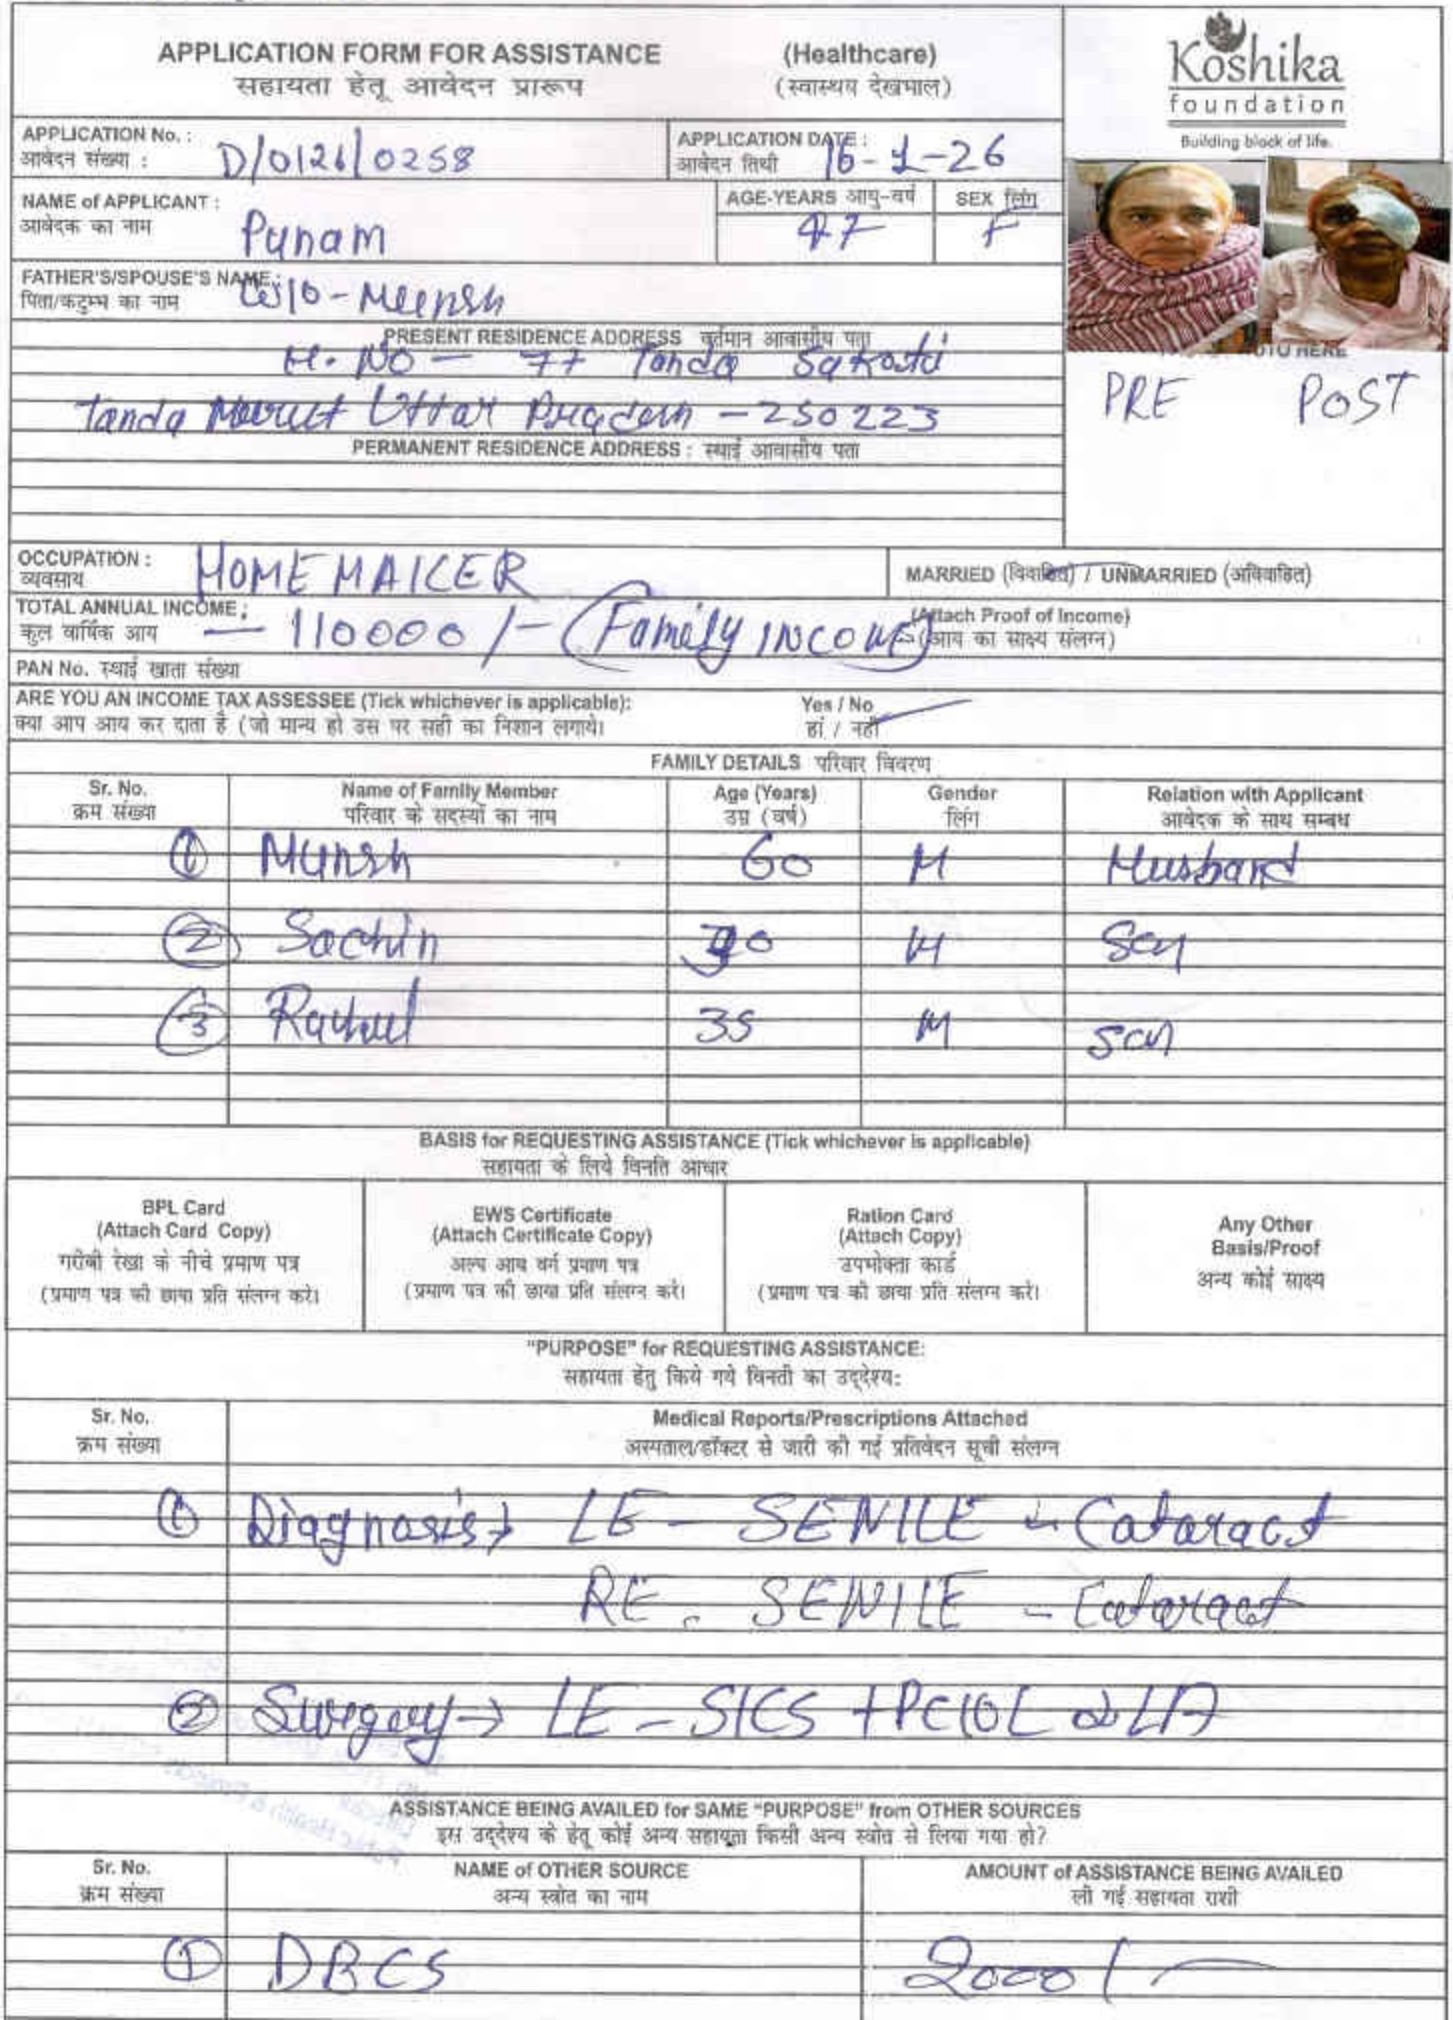 APPLICATION FORM FOR ASSISTANCE (Healthcare)
सहायता हेतू आवेदन प्रारूप (स्वास्थय देखभाल)
Koshika
foundation
Building block of life.
APPLICATION No. : D/0126/0258 APPLICATION DATE : 16-1-26
आवेदन संख्या : आवेदन तिथी
NAME of APPLICANT : Punam AGE-YEARS आयु-वर्ष 47 SEX लिंग F
आवेदक का नाम
FATHER'S/SPOUSE'S NAME : W/o-
पिता/कटुम्भ का नाम
PRESENT RESIDENCE ADDRESS वर्तमान आवासीय पता
H. NO - 77 Tanda Sakoti
Tanda Meerut Uttar Pradesh - 250223
PRE POST
PERMANENT RESIDENCE ADDRESS : स्थाई आवासीय पता
OCCUPATION : HOMEMAKER MARRIED (विवाहित) / UNMARRIED (अविवाहित)
व्यवसाय
TOTAL ANNUAL INCOME : - 110000/- (Family INCOME) (Attach Proof of Income)
कुल वार्षिक आय (आय का साक्ष्य संलग्न)
PAN No. स्थाई खाता संख्या
ARE YOU AN INCOME TAX ASSESSEE (Tick whichever is applicable): Yes / No
क्या आप आय कर दाता है (जो मान्य हो उस पर सही का निशान लगाये। हां / नहीं
FAMILY DETAILS परिवार विवरण
Sr. No. Name of Family Member Age (Years) Gender Relation with Applicant
क्रम संख्या परिवार के सदस्यों का नाम उम्र (वर्ष) लिंग आवेदक के साथ सम्बध
1 60 M Husband
2 Sachin M Son
3 Rahul 35 M Son
BASIS for REQUESTING ASSISTANCE (Tick whichever is applicable)
सहायता के लिये विनति आधार
BPL Card
(Attach Card Copy)
गरीबी रेखा के नीचे प्रमाण पत्र
(प्रमाण पत्र की छाया प्रति संलग्न करे।
EWS Certificate
(Attach Certificate Copy)
अल्प आय वर्ग प्रमाण पत्र
(प्रमाण पत्र की छाया प्रति संलग्न करे।
Ration Card
(Attach Copy)
उपभोक्ता कार्ड
(प्रमाण पत्र की छाया प्रति संलग्न करे।
Any Other
Basis/Proof
अन्य कोई साक्ष्य
"PURPOSE" for REQUESTING ASSISTANCE:
सहायता हेतु किये गये विनती का उद्देश्य:
Sr. No. Medical Reports/Prescriptions Attached
क्रम संख्या अस्पताल/डॉक्टर से जारी की गई प्रतिवेदन सूची संलग्न
1 Diagnosis → LE - SENILE - Cataract
RE - SENILE - Cataract
2 Surgery → LE - SICS + PCIOL LA
ASSISTANCE BEING AVAILED for SAME "PURPOSE" from OTHER SOURCES
इस उद्देश्य के हेतू कोई अन्य सहायता किसी अन्य स्त्रोत से लिया गया हो?
Sr. No. NAME of OTHER SOURCE AMOUNT of ASSISTANCE BEING AVAILED
क्रम संख्या अन्य स्त्रोत का नाम ली गई सहायता राशी
1 DBCS 2000/-